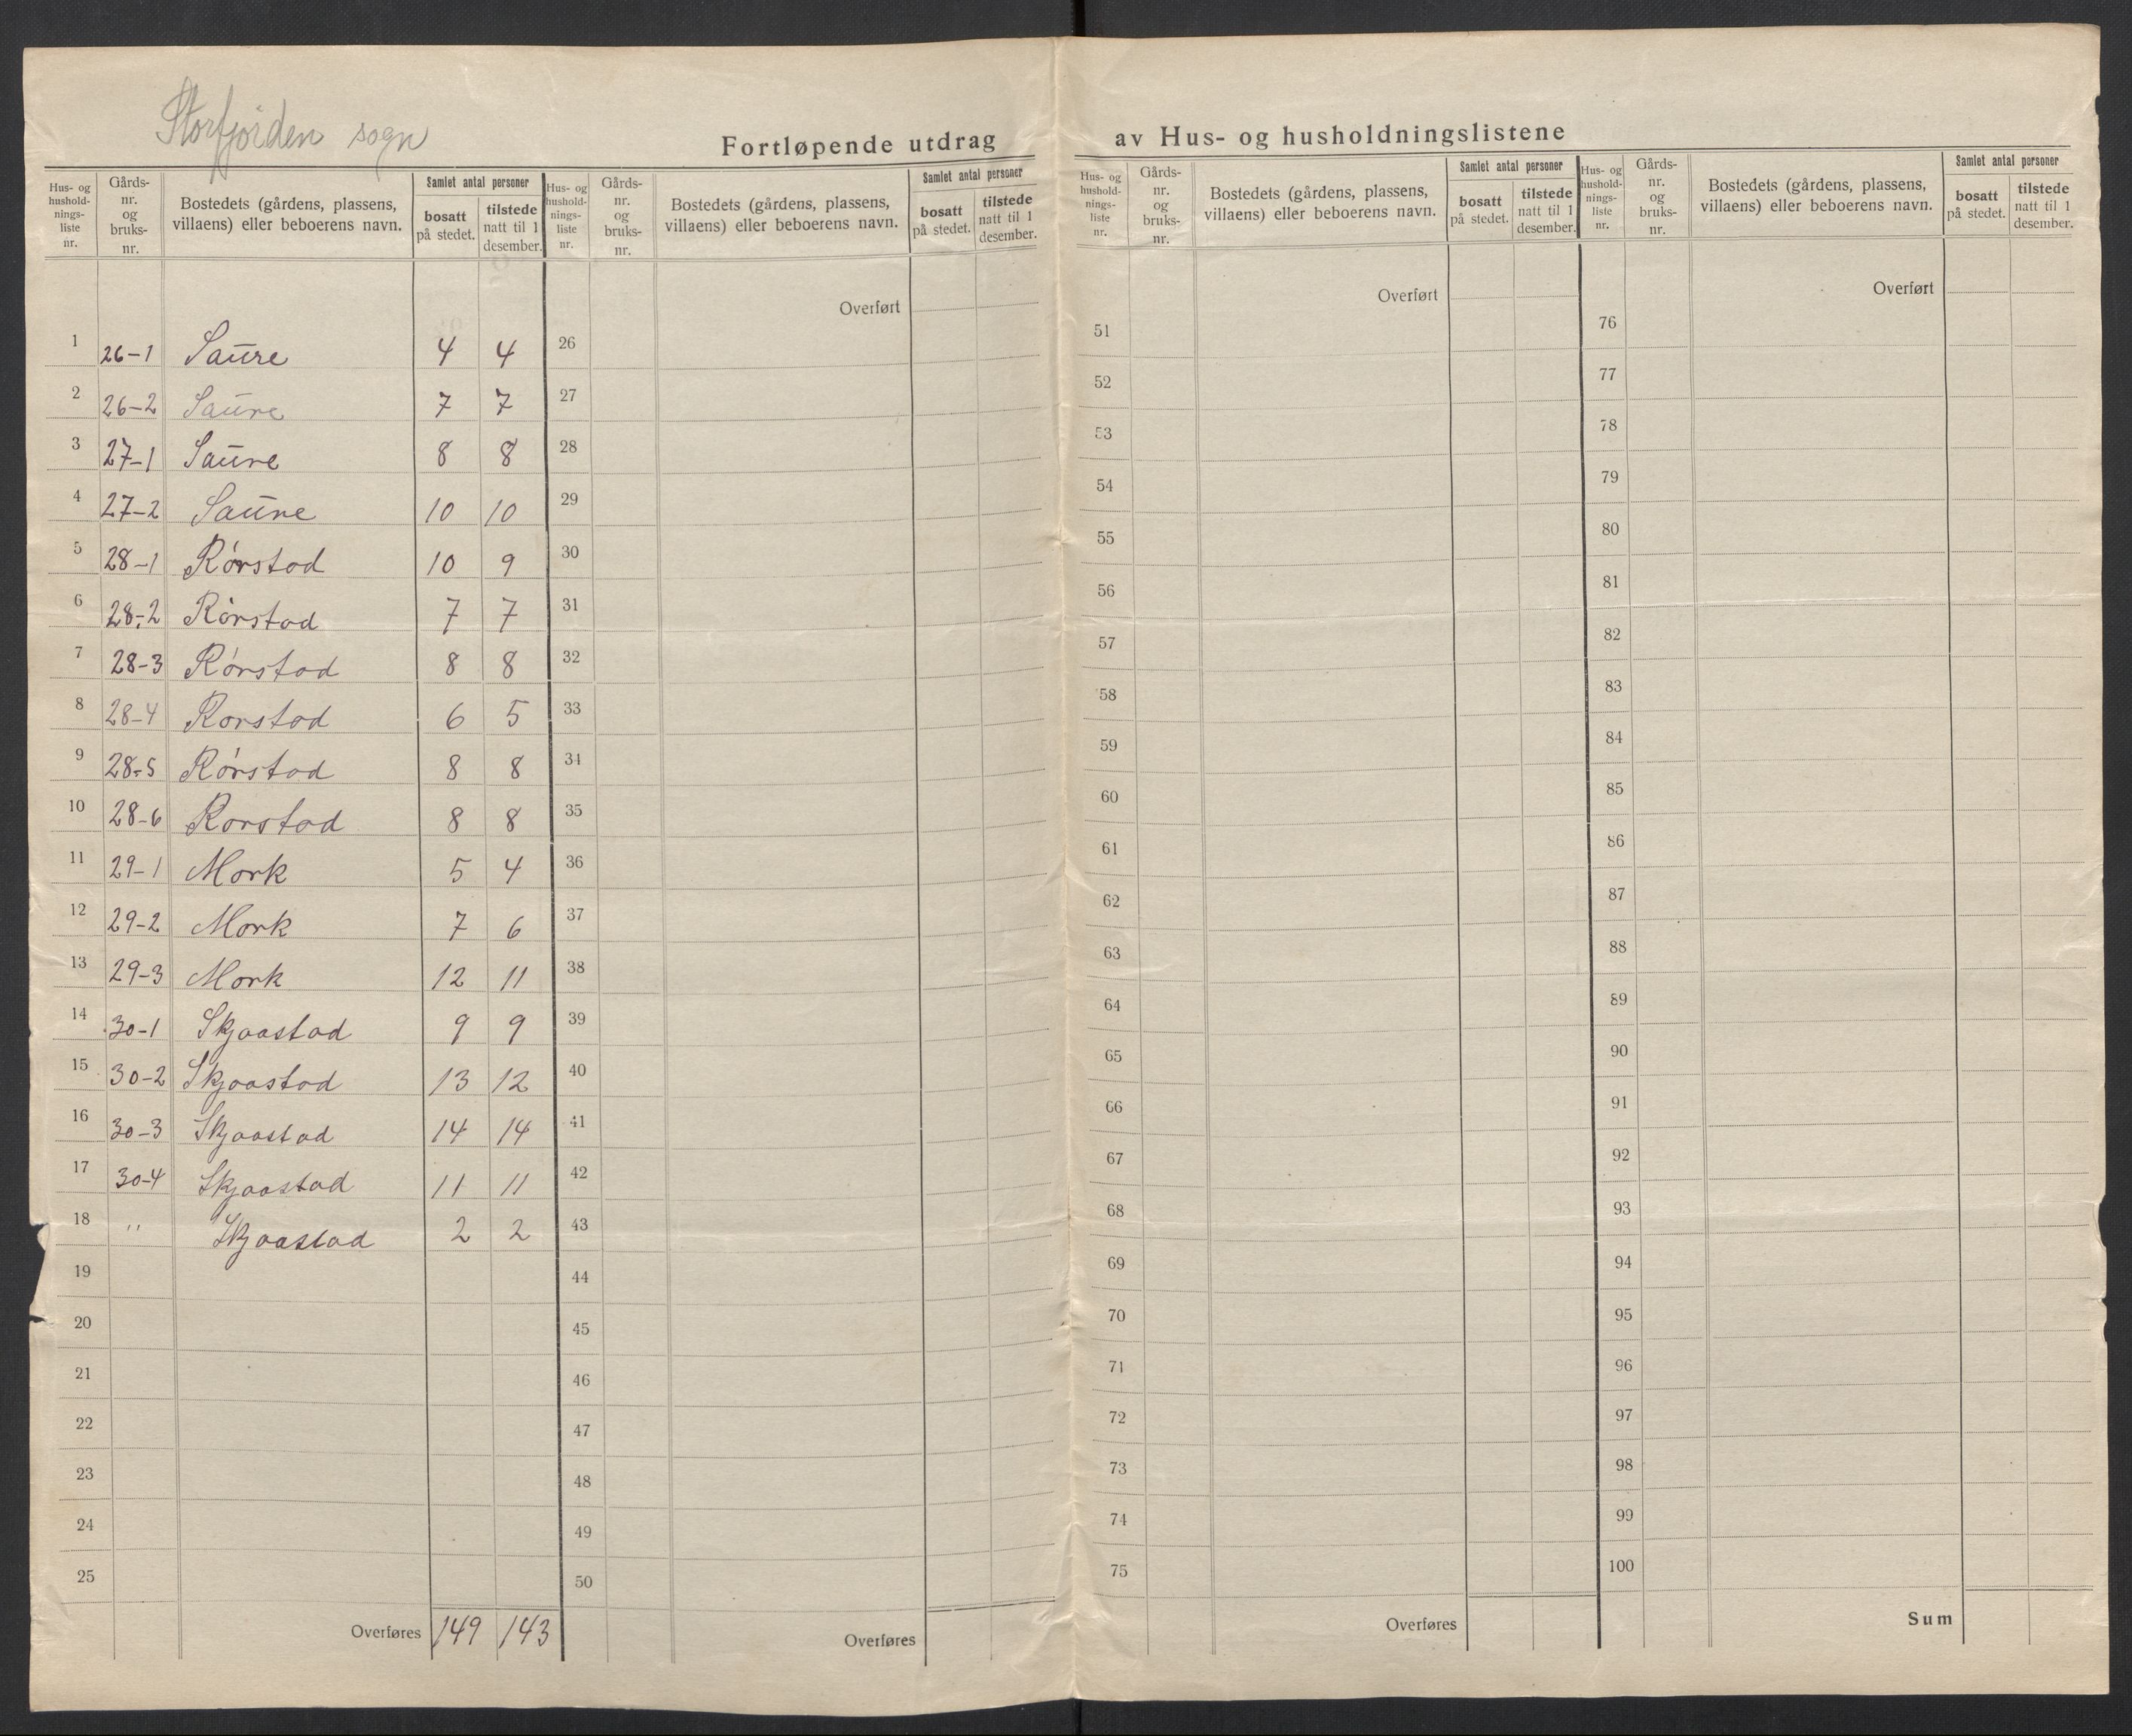 Storfjorden sogn
Fortløpende utdrag av Hus- og husholdningslistene
Hus- og hushold-nings-liste nr.
Gårds-nr. og bruks-nr.
Bostedets (gårdens, plassens, villaens) eller beboerens navn.
Samlet antal personer
bosatt på stedet.
tilstede natt til 1 desember.
1 26-1 Saūre 4 4
2 26-2 Saūre 7 7
3 27-1 Saūre 8 8
4 27-2 Saūre 10 10
5 28-1 Rørstad 10 9
6 28-2 Rørstad 7 7
7 28-3 Rørstad 8 8
8 28-4 Rorstad 6 5
9 28-5 Rørstad 8 8
10 28-6 Rorstad 8 8
11 29-1 Mork 5 4
12 29-2 Mork 7 6
13 29-3 Mork 12 11
14 30-1 Skjaastad 9 9
15 30-2 Skjaastad 13 12
16 30-3 Skjaastad 14 14
17 30-4 Skjaastad 11 11
18 " Skjaastad 2 2
19
20
21
22
23
24
25
Overføres 149 143
Hus- og hushold-nings-liste nr.
Gårds-nr. og bruks-nr.
Bostedets (gårdens, plassens, villaens) eller beboerens navn.
Samlet antal personer
bosatt på stedet.
tilstede natt til 1 desember.
Overført
26
27
28
29
30
31
32
33
34
35
36
37
38
39
40
41
42
43
44
45
46
47
48
49
50
Overføres
Hus- og hushold-nings-liste nr.
Gårds-nr. og bruks-nr.
Bostedets (gårdens, plassens, villaens) eller beboerens navn.
Samlet antal personer
bosatt på stedet.
tilstede natt til 1 desember.
Overført
51
52
53
54
55
56
57
58
59
60
61
62
63
64
65
66
67
68
69
70
71
72
73
74
75
Overføres
Hus- og hushold-nings-liste nr.
Gårds-nr. og bruks-nr.
Bostedets (gårdens, plassens, villaens) eller beboerens navn.
Samlet antal personer
bosatt på stedet.
tilstede natt til 1 desember.
Overført
76
77
78
79
80
81
82
83
84
85
86
87
88
89
90
91
92
93
94
95
96
97
98
99
100
Sum